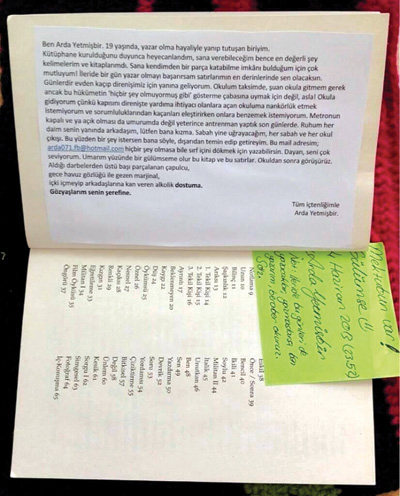 Ben Arda Yetmişbir. 19 yaşında, yazar olma hayaliyle yanıp tutuşan biriyim.
Kütüphane kurulduğunu duyunca heyecanlandım, sana verebileceğim bence en değerli şey
kelimelerim ve kitaplarımdı. Sana kendimden bir parça katabilme imkânı bulduğum için çok
mutluyum! İleride bir gün yazar olmayı başarırsam satırlarımın en derinlerinde sen olacaksın.
Günlerdir evden kaçıp direnişimiz için yanına geliyorum. Okulum taksimde, şuan okula gitmem gerek
ancak bu hükümetin 'hiçbir şey olmuyormuş gibi' gösterme çabasına uymak için değil, asla! Okula
gidiyorum çünkü kapısını direnişte yardıma ihtiyacı olanlara açan okuluma nankörlük etmek
istemiyorum ve sorumluluklarından kaçanları eleştirirken onlara benzemek istemiyorum. Metronun
kapalı ve ya açık olması da umurumda değil yeterince antrenman yaptık son günlerde. Ruhum her
daim senin yanında arkadaşım, lütfen bana kızma. Sabah yine uğrayacağım, her sabah ve her okul
çıkışı. Bu yüzden bir şey istersen bana söyle, dışarıdan temin edip getireyim. Bu mail adresim;
arda071.fb@hotmail.com hiçbir şey olmasa bile sırf içini dökmek için yazabilirsin. Dayan, seni çok
seviyorum. Umarım yüzünde bir gülümseme olur bu kitap ve bu satırlar. Okuldan sonra görüşürüz.
Aldığı darbelerden üstü başı parçalanan çapulcu,
gece havuz gözlüğü ile gezen marjinal,
içki içmeyip arkadaşlarına kan veren alkolik dostuma.
Gözyaşlarım senin şerefine.
Tüm içtenliğimle
Arda Yetmişbir.
Mektubum var!
Arda Yetmişbir
Uzun 10
Bilinç 11
Şaşkınlık 12
Artku 13
1. Tekil Kişi 14
2. Tekil Kişi 15
3. Tekil Kişi 16
Ayrım 17
Beklenmeyen 20
Kayıp 22
Dış 24
Öykümsü 25
Öznel 26
Nesnel 27
Kaçkın 28
Renkli 30
Kızgın 31
Eğretileme 33
Mülteni I 34
Film Öyküsü 35
Özgürü 37
Eskil 38
Önce / Sonra 39
Bencil 40
Bati 41
Soylu 42
Mülteni II 44
İtalik 45
Unutkan 46
Ben 48
Sen 49
Yazdırma 50
Devrik 52
Soru 53
Yordamsı 54
Çiziktirme 55
Bitkisel 57
Değil 58
Ünlem 60
Kesik 61
Sorgu 62
Simgesel 63
Fotoğraf 64
İç-Konuşma 65